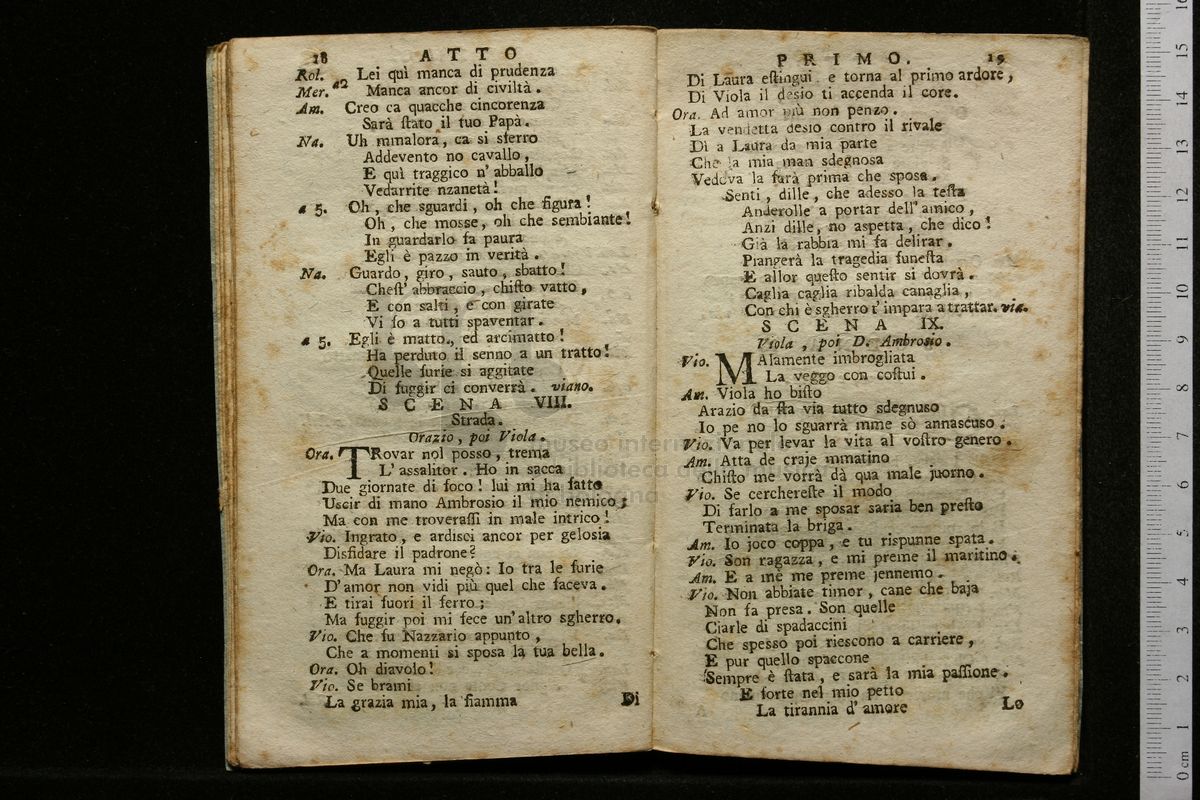 18 ATTO
Rol. a2 Lei quì manca di prudenza
Mer. Manca ancor di civiltà.
Am. Creo ca quacche cincorenza
Sarà ſtato il tuo Papà.
Na. Uh mmalora, ca si sferro
Addevento no cavallo,
E quì traggico n' abballo
Vedarrite nzanetà!
a 5. Oh, che sguardi, oh che figura!
Oh, che mosse, oh che sembiante!
In guardarlo fa paura
Egli è pazzo in verità.
Na. Guardo, giro, sauto, sbatto!
Cheſt' abbraccio, chiſto vatto,
E con salti, e con girate
Vi fo a tutti spaventar.
a 5. Egli è matto, ed arcimatto!
Ha perduto il senno a un tratto!
Quelle furie si aggitate
Di fuggir ci converrà. viano.
SCENA VIII.
Strada.
Orazio, poi Viola.
Ora. TRovar nol posso, trema
L' assalitor. Ho in sacca
Due giornate di foco! lui mi ha fatto
Uscir di mano Ambrosio il mio nemico;
Ma con me troveraſſi in male intrico!
Vio. Ingrato, e ardisci ancor per gelosia
Disfidare il padrone?
Ora. Ma Laura mi negò: Io tra le furie
D' amor non vidi più quel che faceva.
E tirai fuori il ferro;
Ma fuggir poi mi fece un' altro sgherro.
Vio. Che fu Nazzario appunto,
Che a momenti si sposa la tua bella.
Ora. Oh diavolo!
Vio. Se brami
La grazia mia, la fiamma
Di
PRIMO. 19
Di Laura eſtingui e torna al primo ardore,
Di Viola il desio ti accenda il core.
Ora. Ad amor più non penzo.
La vendetta desio contro il rivale
Dì a Laura da mia parte
Che la mia man sdegnosa
Vedova la farà prima che sposa.
Senti, dille, che adesso la teſta
Anderolle a portar dell' amico,
Anzi dille, no aspetta, che dico!
Già la rabbia mi fa delirar.
Piangerà la tragedia funeſta
E allor queſto sentir si dovrà.
Caglia caglia ribalda canaglia,
Con chi è sgherro t' impara a trattar. via.
SCENA IX.
Viola, poi D. Ambrosio.
Vio. MAlamente imbrogliata
La veggo con coſtui.
Am. Viola ho biſto
Arazio da ſta via tutto sdegnuso
Io pe no lo sguarrà mme sò annascuso.
Vio. Va per levar la vita al voſtro genero.
Am. Atta de craje mmatino
Chiſto me vorrà dà qua male juorno.
Vio. Se cerchereſte il modo
Di farlo a me sposar saria ben preſto
Terminata la briga.
Am. Io joco coppa, e tu rispunne spata.
Vio. Son ragazza, e mi preme il maritino.
Am. E a me me preme jennemo.
Vio. Non abbiate timor, cane che baja
Non fa presa. Son quelle
Ciarle di spadaccini
Che spesso poi riescono a carriere,
E pur quello spaccone
Sempre è ſtata, e sarà la mia paſſione.
E forte nel mio petto
La tirannia d' amore
Lo